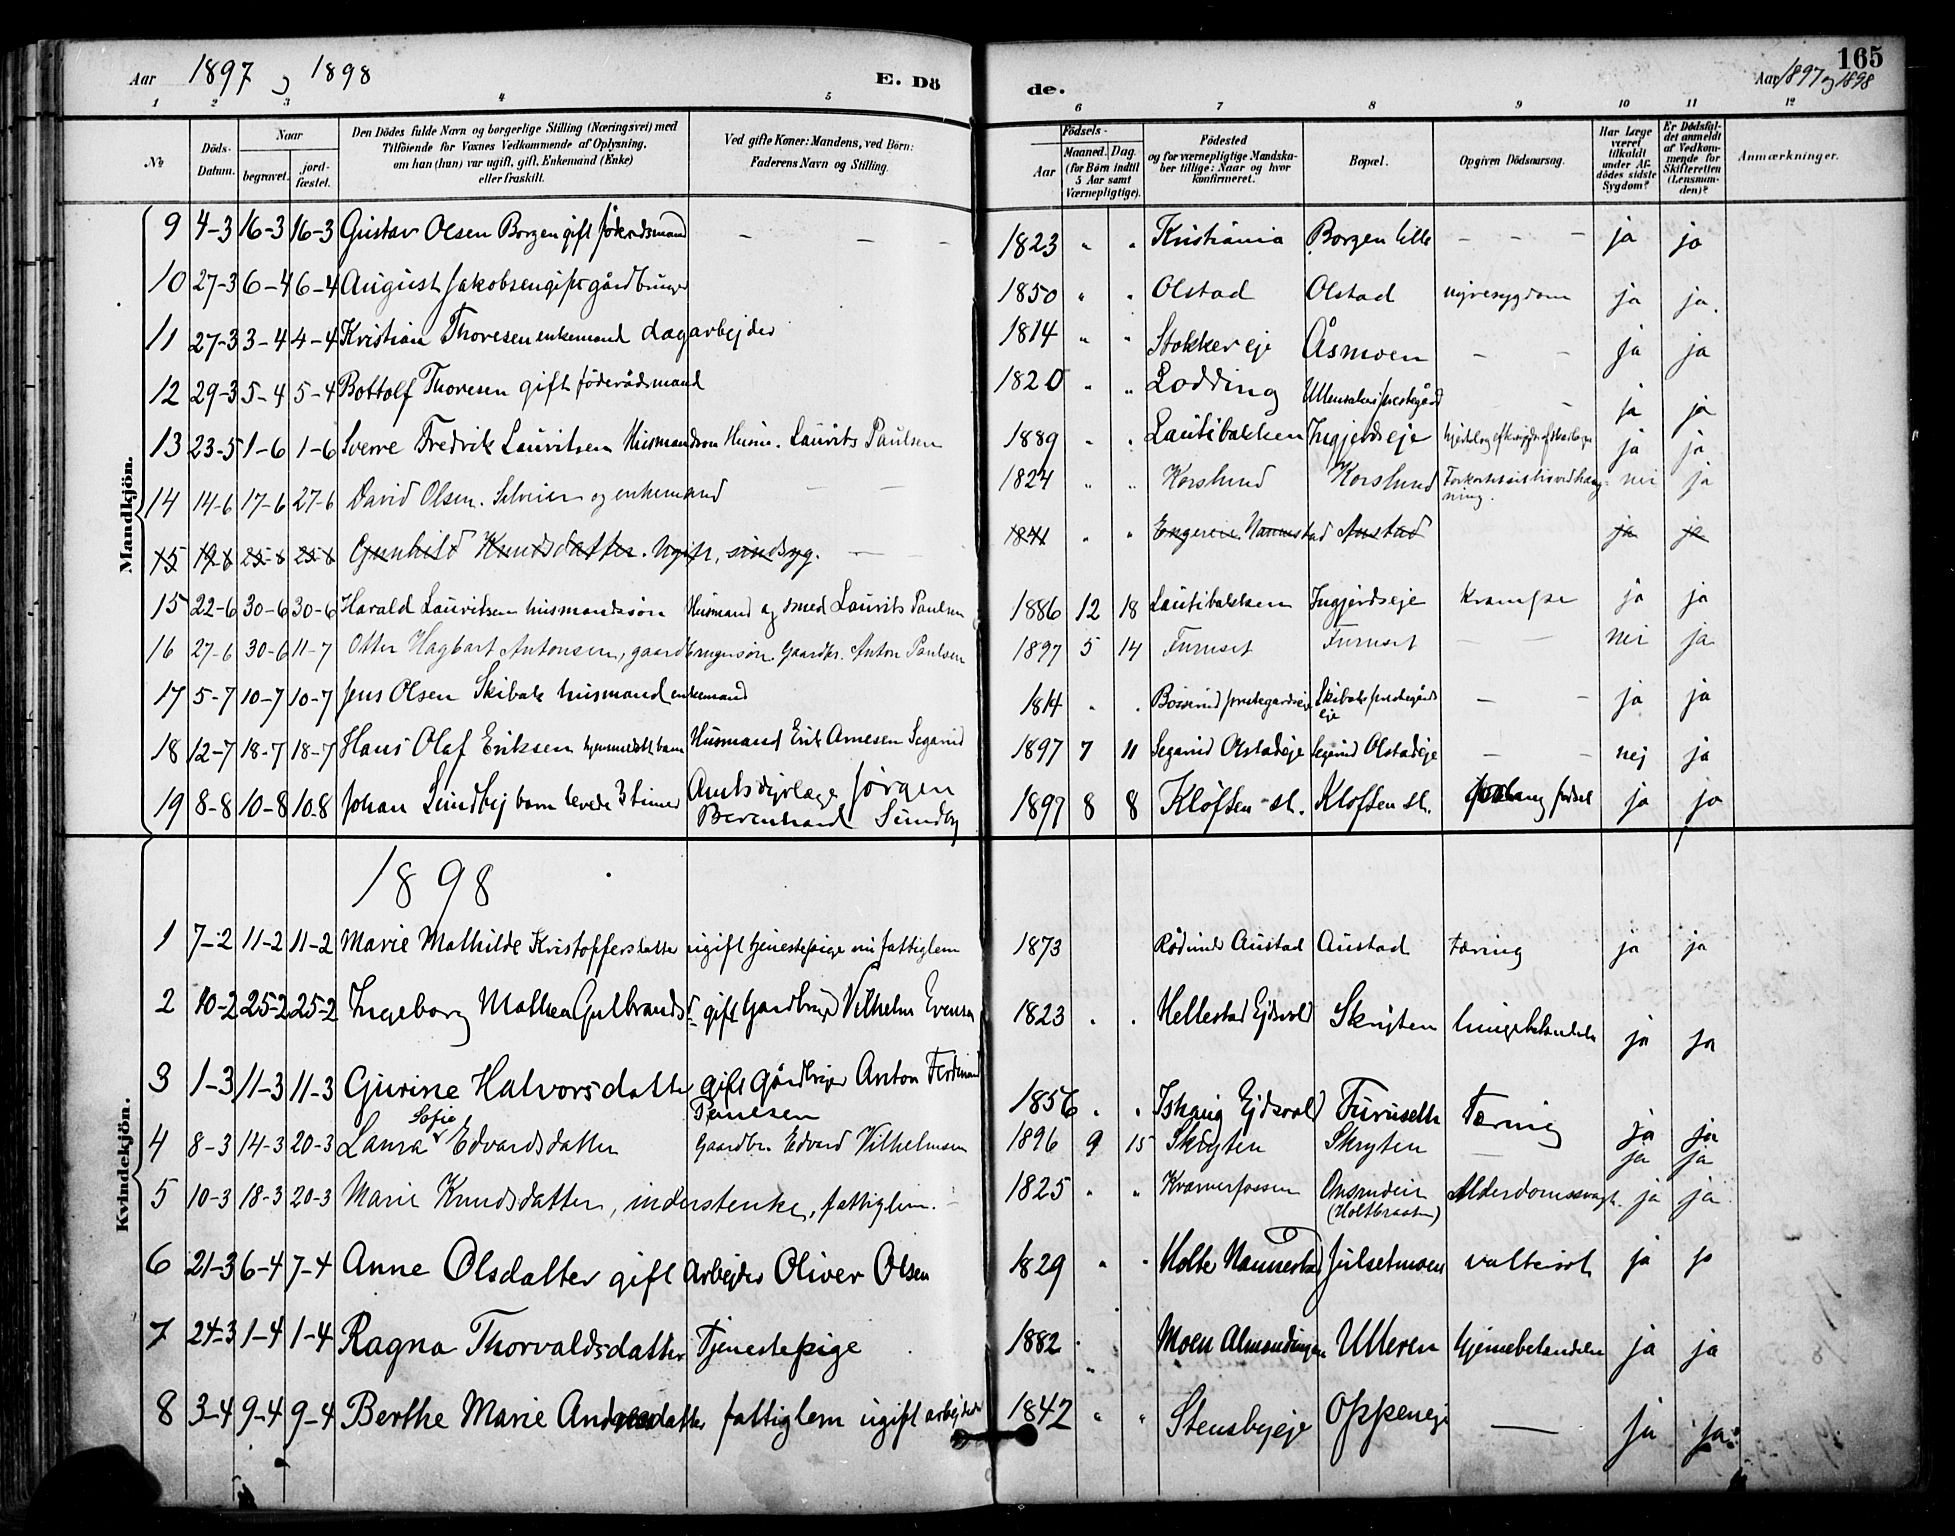 Aar 1897 og 1898 E. Dö
de. 165
Aar 1897 og 1898
1 2 3 4 5 6 7 8 9 10 11 12
No
Döds-Datum.
Naar
begravet.
jord-fæstet.
Den Dödes fulde Navn og borgerlige Stilling (Næringsvei) med
Tilföiende for Voxnes Vedkommende af Oplysning,
om han (hun) var ugift, gift, Enkemand (Enke)
eller fraskilt.
Ved gifte Koner: Mandens, ved Börn:
Faderens Navn og Stilling.
Födsels-
Aar
Maaned. Dag.
(for Börn indtil
5 Aar samt
Værnepligtige).
Födested
og for værnepligtige Mandska-
ber tillige: Naar og hvor
konfirmeret.
Bopæl.
Opgiven Dödsaarsag.
Har Læge
været
tilkaldt
under Af-
dödes sidste
Sygdom?
Er Dödsfal-
det anmeldt
af Vedkom-
mende for
Skifteretten
(Lensman-
den)?
Anmærkninger.
Mandkjön.
9 4-3 16-3 16-3 Gustav Olsen Borgen gift föderådsmand - - - 1823 " " Kristiania Borgen lille - - - ja ja
10 27-3 6-4 6-4 August Jakobsen gift gårdbruger 1850 " " Olstad Olstad nyresygdom ja ja.
11 27-3 3-4 4-4 Kristian Thoresen enkemand dagarbejder 1814 " " Stokker eje Åsmoen - - ja ja
12 29-3 5-4 5-4 Bottolf Thoresen gift föderådsmand 1820 " " Lodding Ullensaker prestegård - ja ja
13 23-5 1-6 1-6 Sverre Fredrik Lauritsen Husmandssøn Husm. Laurits Paulsen 1889 " " Lautibakken Ingjerdseje ja ja
14 14-6 17-6 27-6 David Olsen. Selveier og enkemand - - 1824 " " Korslund Korslund Forkortet sit liv ved hæng-
ning. nei ja
15 19-8 25-8 25-8 Gunhild Knudsdatter. Ugift, sindsyg. - - 1841 " " Engereie. Nannestad Austad ja ja
15 22-6 30-6 30-6 Harald Lauritsen husmandssøn Husmand og smed Laurits Paulsen 1886 12 18 Lautibakken Ingjerdseje Krampe ja ja
16 27-6 30-6 11-7 Otter Hagbart Antonsen, gaardbrugersøn Gaardbr. Anton Paulsen 1897 5 14 Furuset Furuset - - nei ja
17 5-7 10-7 10-7 Jens Olsen Skibak husmand enkemand 1814 " " prestegardseje Skibak prestegårds
eje - - ja ja
18 12-7 18-7 18-7 Hans Olaf Eriksen hjemmedøbt barn Husmand Erik Arnesen Segarud 1897 7 11 Segarud Olstadeje Segarud Olstadeje - - nej ja
19 8-8 10-8 10-8 Johan Sundby barn levede 3 timer Amtsdyrlæge Jørgen
Berenhard Sundby 1897 8 8 Kløften st. Kløften st. fødsel ja ja
1898
Kvindekjön.
1 7-2 11-2 11-2 Marie Mathilde Kristoffersdatter ugift tjenestepige nu fattiglem 1873 Rødmud Austad Austad Tæring ja ja
2 10-2 25-2 25-2 Ingeborg Mathea Gulbrandsd. gift Gardbruger Vilhelm Evensen 1823 " " Hellestad Ejdsvold Skryten lungebetændelse ja ja
3 1-3 11-3 11-3 Gurine Halvorsdatter gift Gårdbruger Anton Ferdinand
Paulsen 1856 " " Ejdsvold Furuseth Tæring ja ja
4 8-3 14-3 20-3 Laura Sofie Edvardsdatter Gaardbr. Edvard Vilhelmsen 1896 9 15 Skryten Skryten - ja ja
5 10-3 18-3 20-3 Marie Knudsdatter, inderstenke, fattiglem. - 1825 " " Kværnerfossen Onsrudeie
(Holtbraaten) Alderdomssvagh. ja ja
6 21-3 6-4 7-4 Anne Olsdatter gift Arbejder Oliver Olsen 1829 " " Holte Nannestad Julsetmoen vattersot ja ja
7 24-3 1-4 1-4 Ragna Thorvaldsdatter Tjenestepige 1882 " " Moen Almendingen Ulleren hjernebetændelse ja ja
8 3-4 9-4 9-4 Berthe Marie Andersdatter fattiglem ugift arbejderske 1842 " " Stensbyeje Oppeneje - ja ja